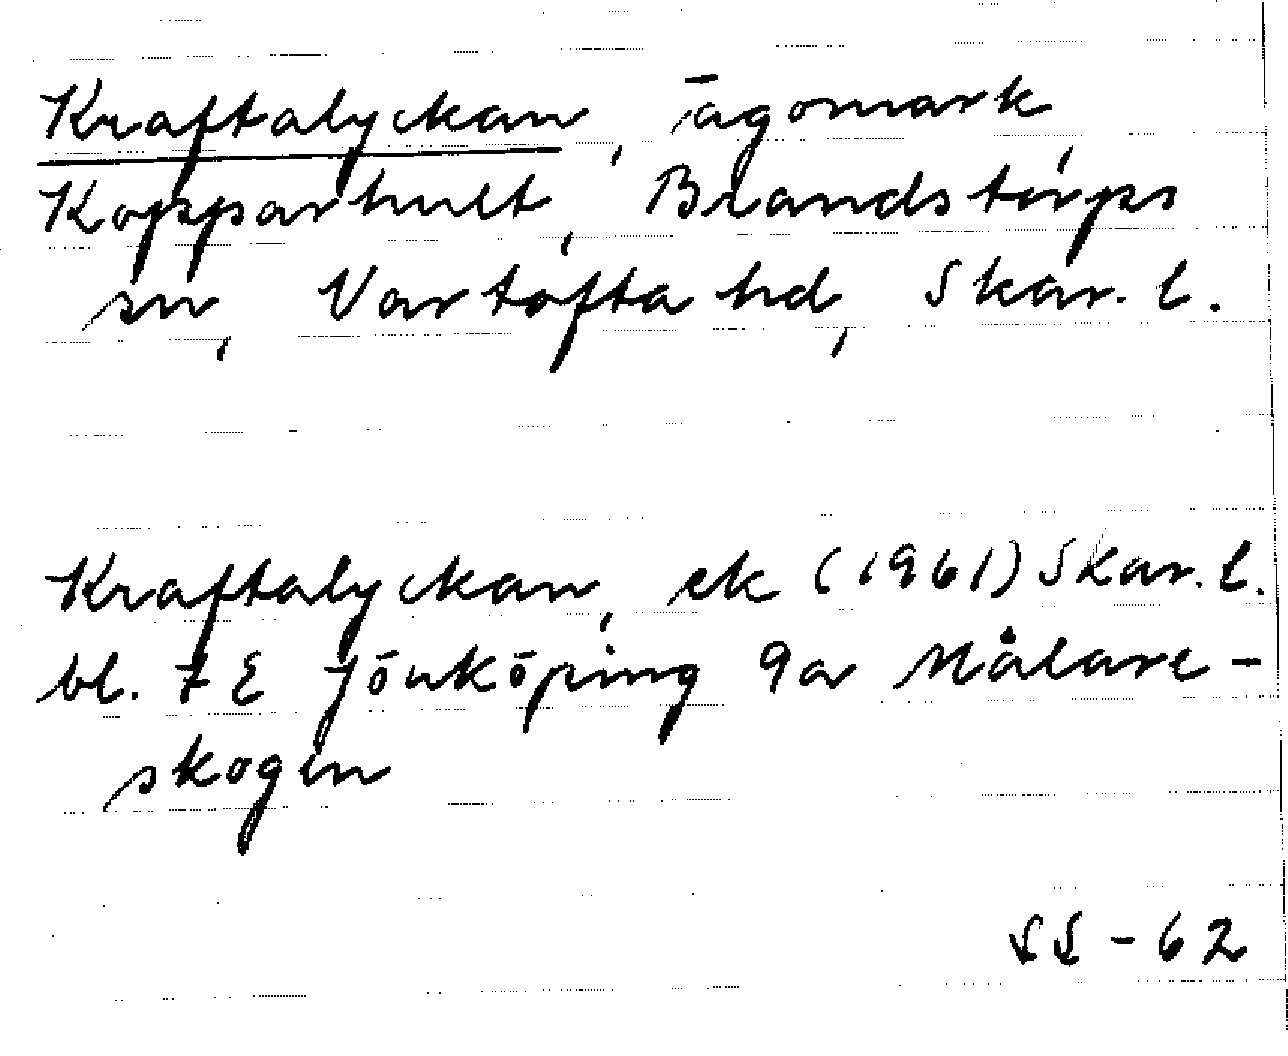 Kraftalyckan, ägomark,
Kopparhult, Brandstorps
sn, Vartofta hd, Skar. l.
Kraftalyckan, ek (1961) Skar. l.
bl. 7 E Jönköping 9a Målare-
skogen
SS - 62